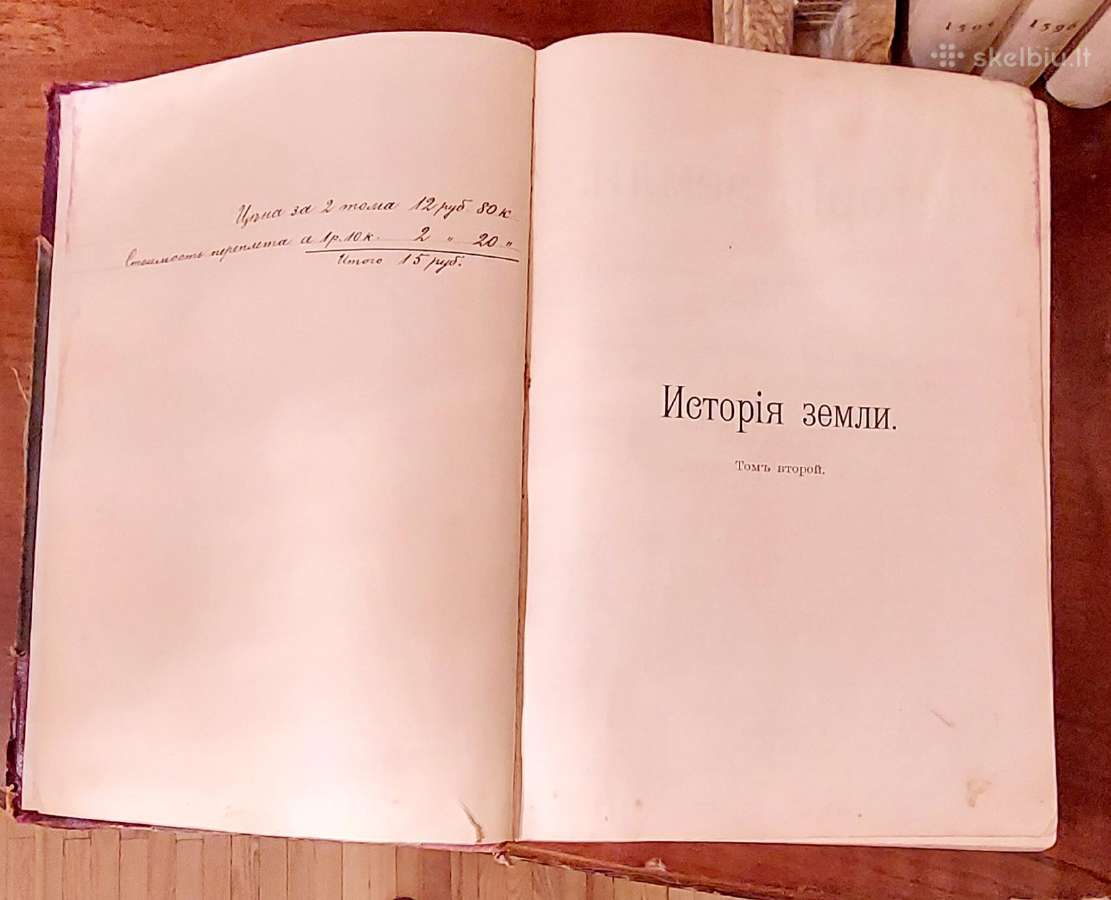 Цѣна за 2 тома 12 руб. 80 к.
Стоимость переплета а 1 р. 10 к. 2 " 20 "
Итого 15 руб.
Исторія земли.
Томъ второй.
skelbiu.lt